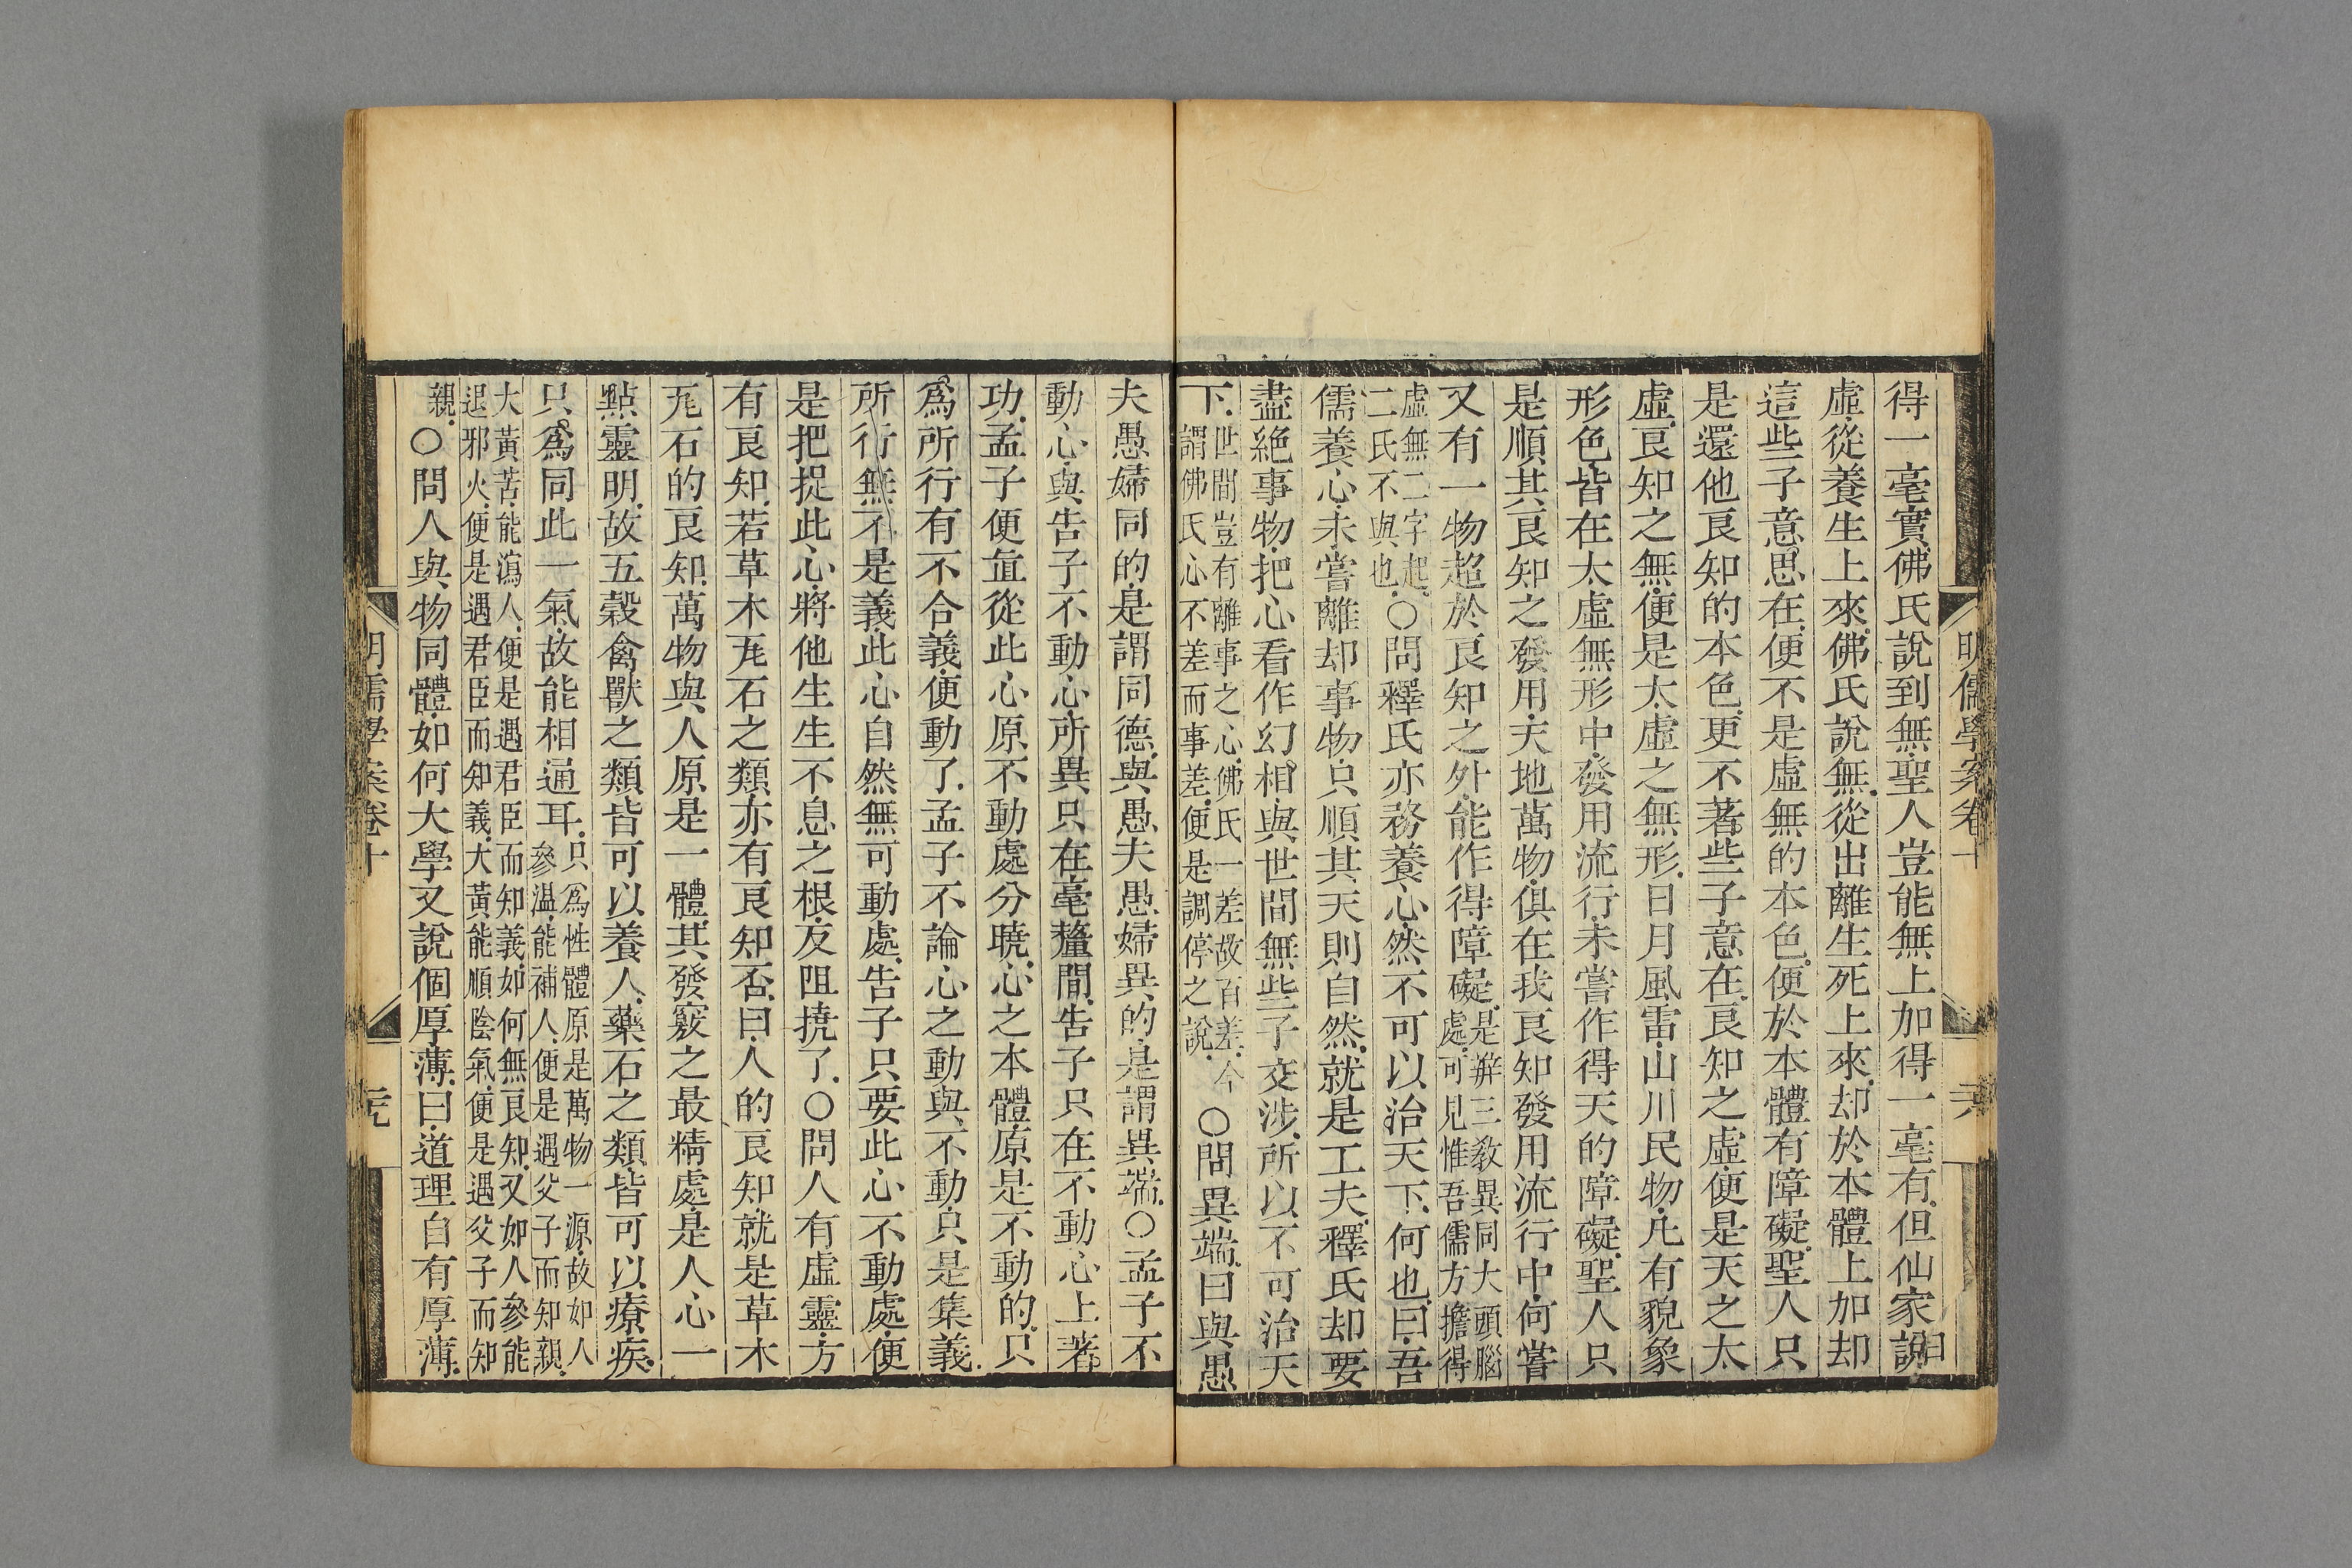 明儒學案卷十
六
得一毫實佛氏說到無聖人豈能無上加得一毫有但仙家說
虛從養生上來佛氏說無從出離生死上來却於本體上加却
這些子意思在便不是虛無的本色便於本體有障礙聖人只
是還他良知的本色更不著些子意在良知之虛便是天之太
虛良知之無便是太虛之無形日月風雷山川民物凡有貌象
形色皆在太虛無形中發用流行未嘗作得天的障礙聖人只
是順其良知之發用天地萬物俱在我良知發用流行中何嘗
又有一物超於良知之外能作得障礙是辨三教異同大頭腦
處可見惟吾儒方擔得
虛無二字起
二氏不與也〇問釋氏亦務養心然不可以治天下何也曰吾
儒養心未嘗離却事物只順其天則自然就是工夫釋氏却要
盡絕事物把心看作幻相與世間無些子交涉所以不可治天
下世間豈有離事之心佛氏一差故百差今
謂佛氏心不差而事差便是調停之說〇問異端曰與愚
夫愚婦同的是謂同德與愚夫愚婦異的是謂異端〇孟子不
動心與告子不動心所異只在毫釐間告子只在不動心上著
功孟子便直從此心原不動處分曉心之本體原是不動的只
爲所行有不合義便動了孟子不論心之動與不動只是集義
所行無不是義此心自然無可動處告子只要此心不動處便
是把捉此心將他生生不息之根反阻撓了〇問人有虛靈方
有良知若草木瓦石之類亦有良知否曰人的良知就是草木
瓦石的良知萬物與人原是一體其發竅之最精處是人心一
點靈明故五穀禽獸之類皆可以養人藥石之類皆可以療疾
只爲同此一氣故能相通耳只爲性體原是萬物一源故如人
參溫能補人便是遇父子而知親
大黃苦能瀉人便是遇君臣而知義如何無良知又如人參能
退邪火便是遇君臣而知義大黃能順陰氣便是遇父子而知
親〇問人與物同體如何大學又說個厚薄曰道理自有厚薄
明儒學案卷十